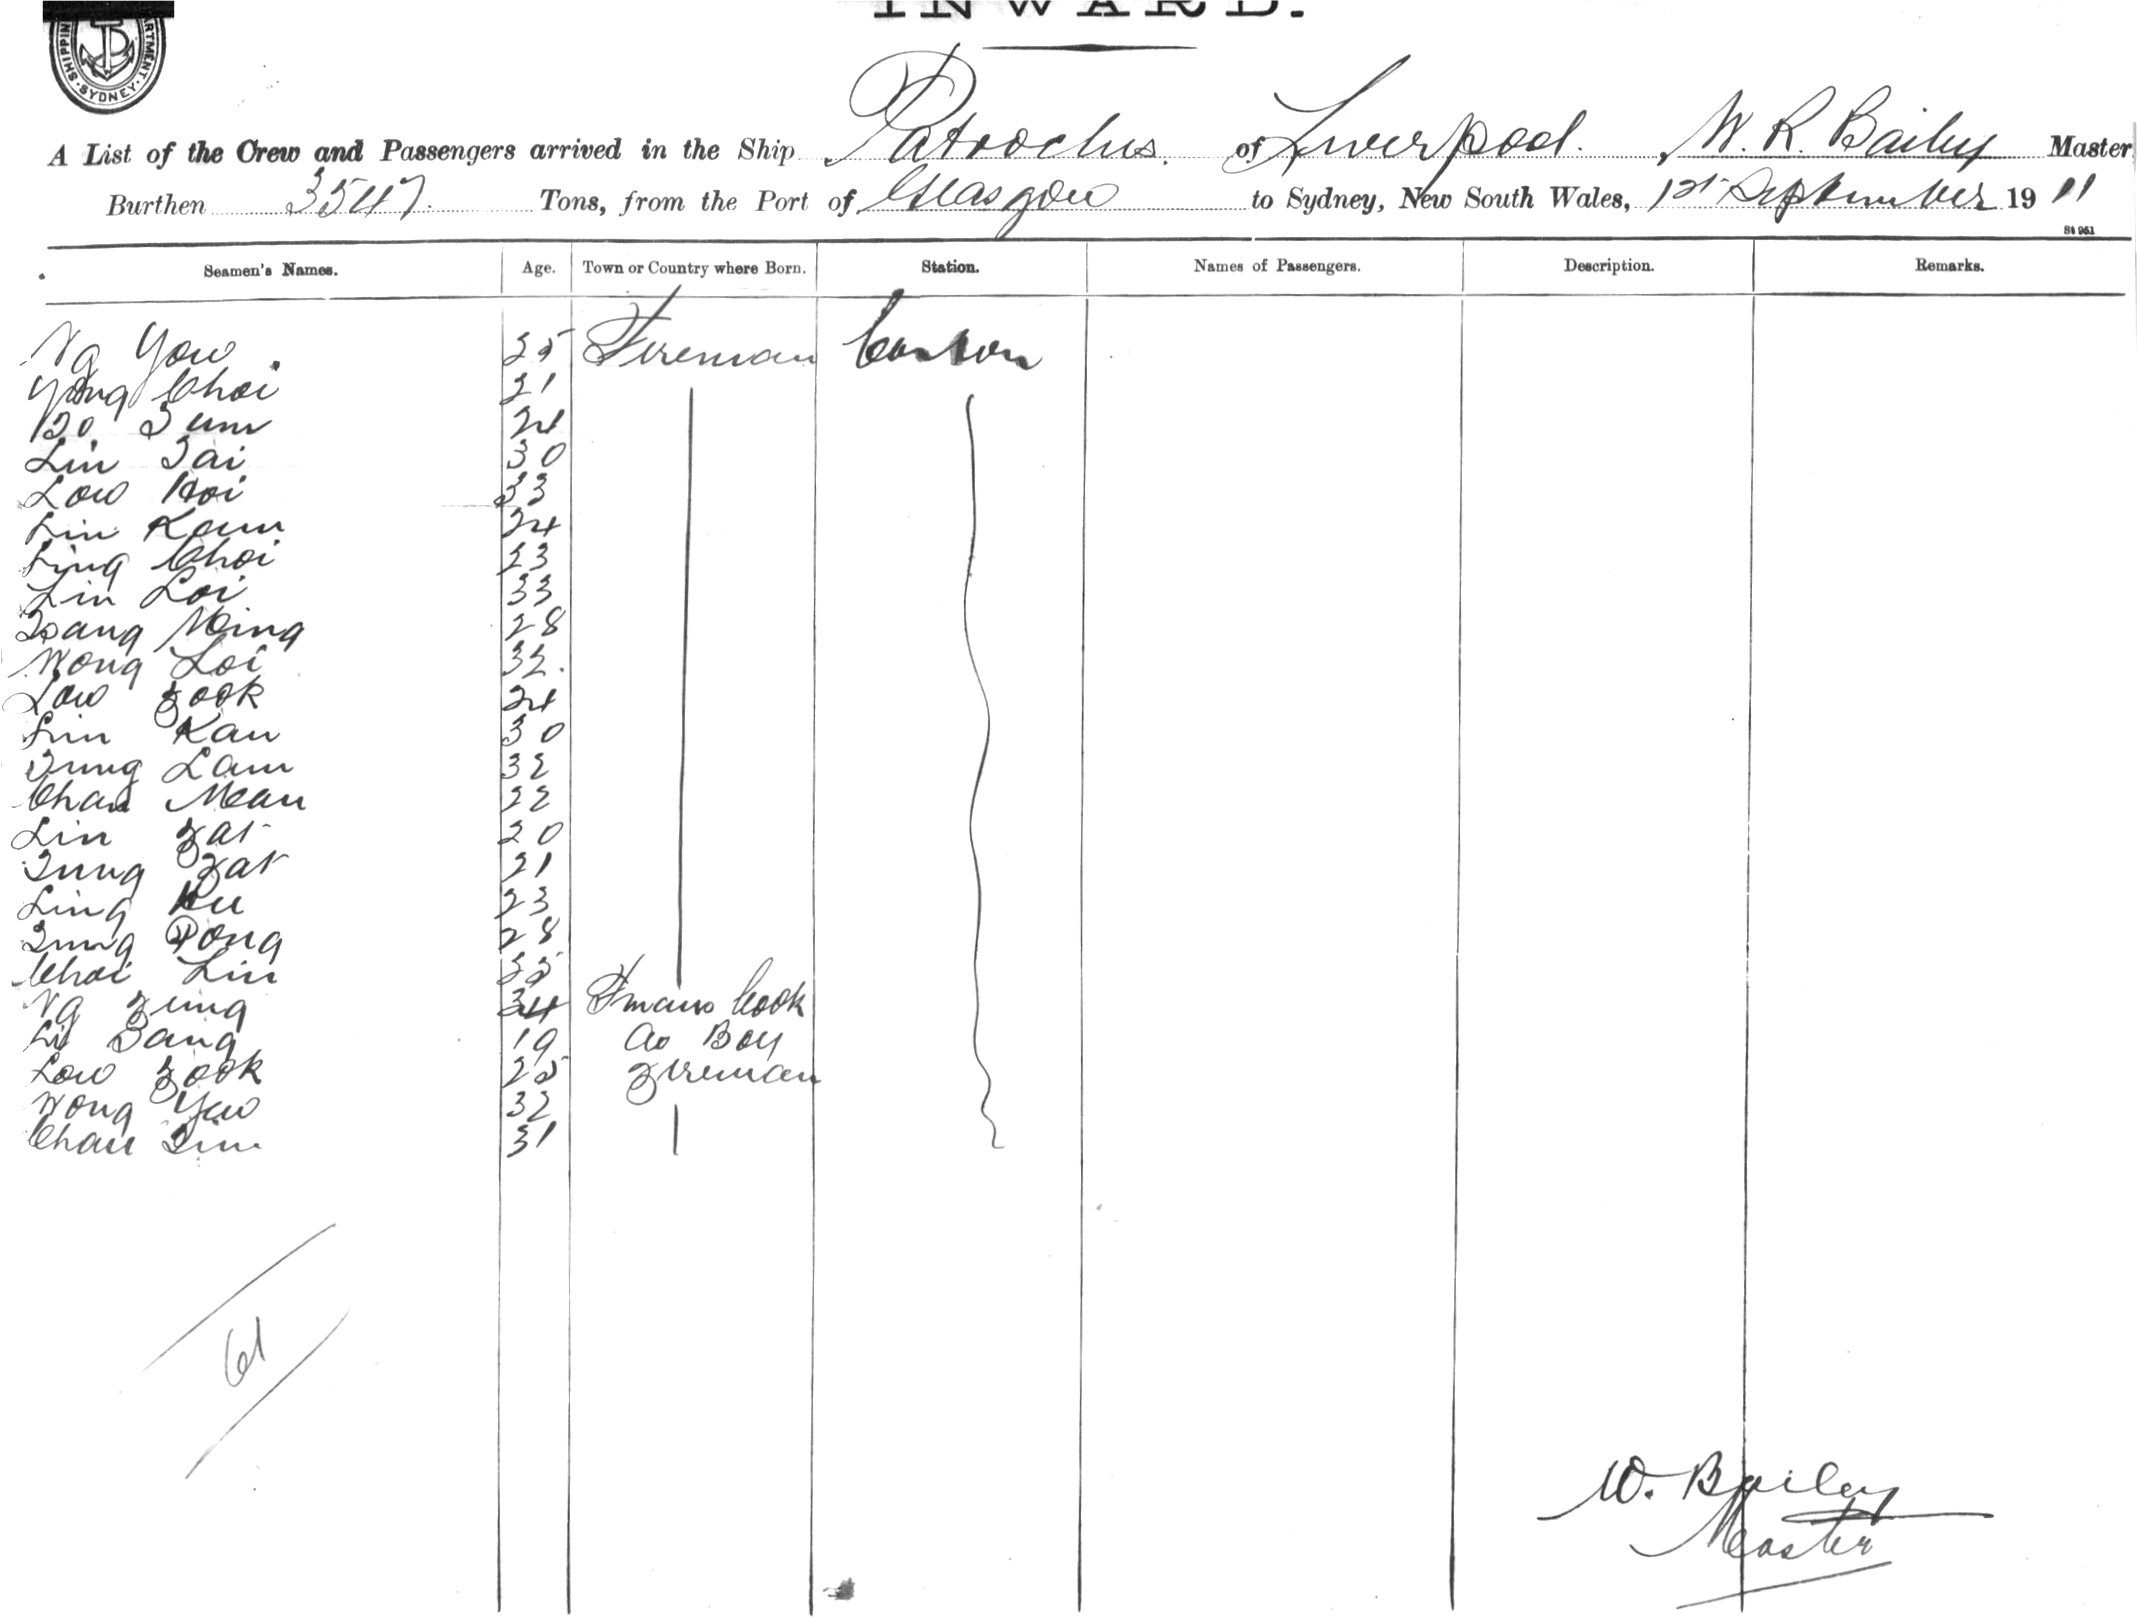 INWARD.
SHIPPING DEPARTMENT. SYDNEY.
A List of the Crew and Passengers arrived in the Ship Patroclus. of Liverpool. W. R. Bailey Master
Burthen 3547. Tons, from the Port of Glasgow to Sydney, New South Wales, 1st September 1911
St 961
Seamen's Names. Age. Town or Country where Born. Station. Names of Passengers. Description. Remarks.
Ng Yow. 35 Fireman Canton
Yong Choi 21
Do. Sum 24
Lin Tai 30
Low Hoi 33
Lin Kam 24
Ling Choi 23
Lin Loi 33
Tsang Ming 28
Wong Loi 32.
Low Fook 24
Lin Kan 30
Tung Lam 32
Chan Man 22
Lin Fat 20
Tung Fat 21
Ling Hu 23
Tung Pong 28
Choi Lin 35
Ng Fung 34 Fmans Cook
Li Sang 19 do Boy
Low Fook 25 Fireman
Wong Yew 32
Chan Tim 31
61
W. Bailey
Master